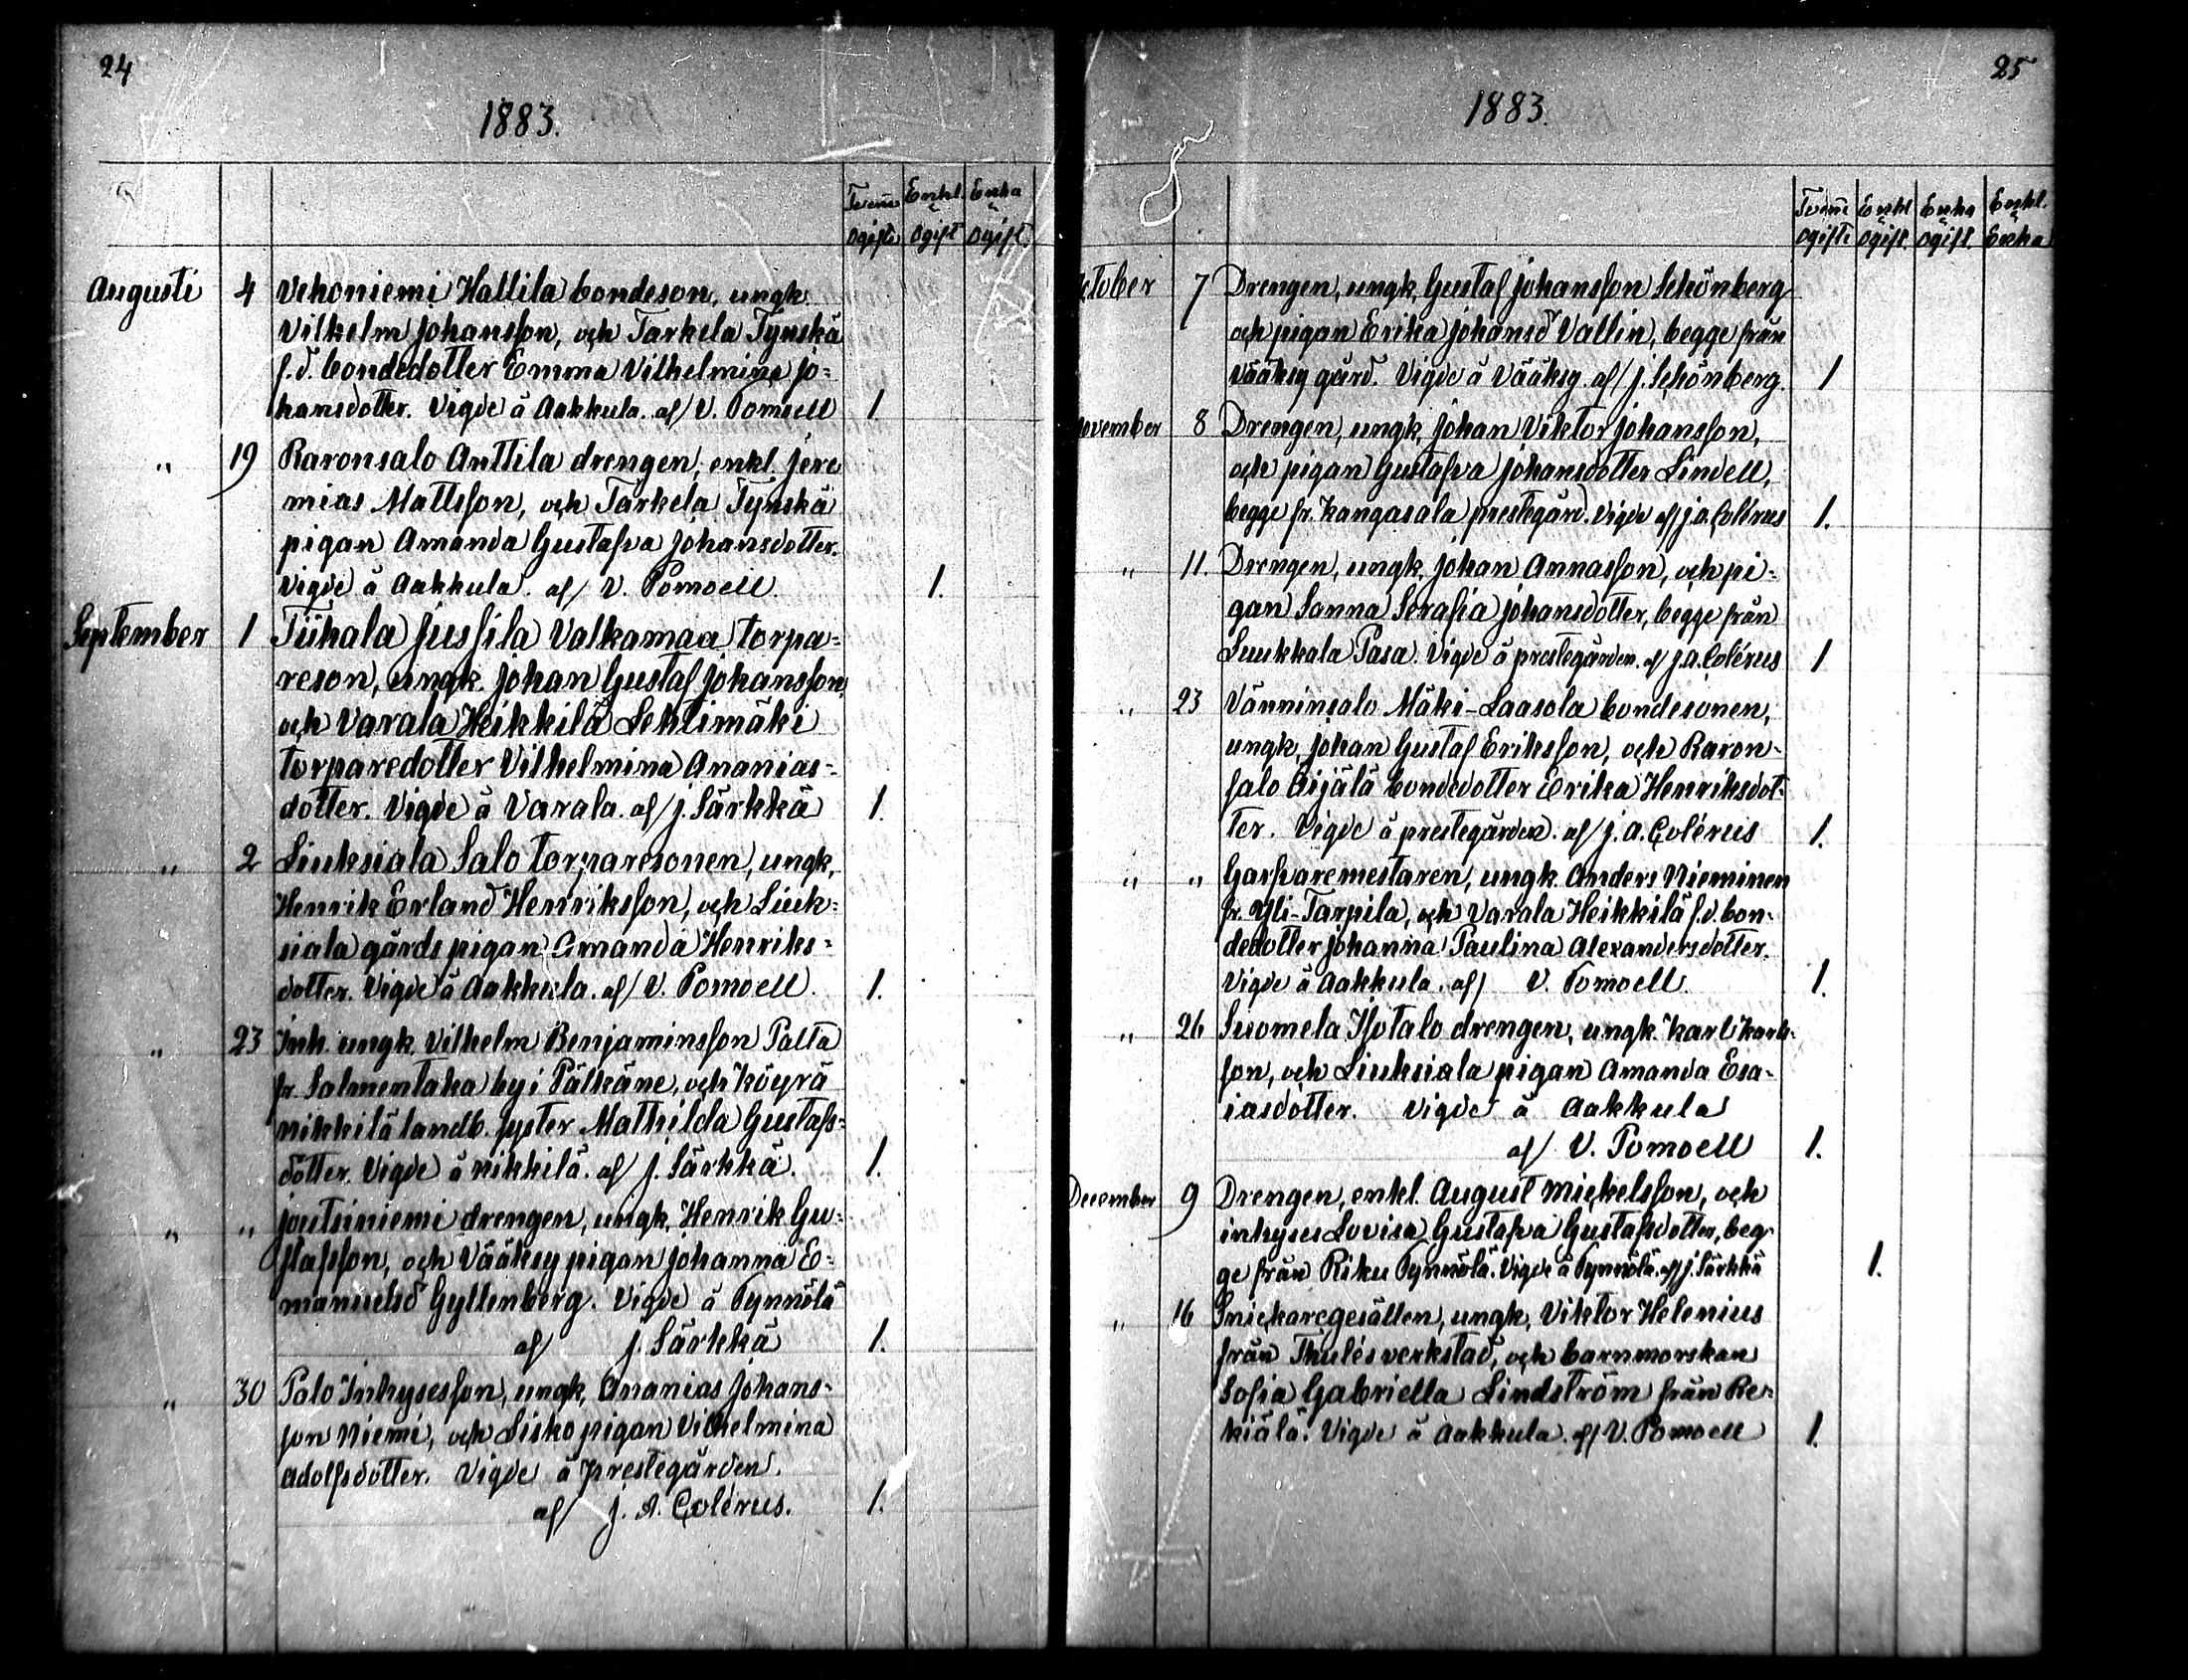 24
1883.
Tvenne Enkl. Enka
ogifte ogift ogift
Augusti 4 Vehoniemi Hallila bondeson, ungk.
Vilhelm Johansson, och Tarkela Tynskä
f.d. bondedotter Emma Vilhelmina Jo-
hansdotter. Vigde å Aakkula. af/ V. Pomoell 1
" 19 Raronsalo Anttila drengen, enkl. Jere
mias Mattsson, och Tarkela Tynskä
pigan Amanda Gustafva Johansdotter.
Vigde å Aakkula. af/ V. Pomoell. 1.
September 1 Tiihala Jussila Valkamaa torpa-
reson, ungk. Johan Gustaf Johansson,
och Varala Heikkilä Lehtimäki
torparedotter Vilhelmina Ananias-
dotter. Vigde å Varala. af/ J. Särkkä 1.
" 2 Liuksiala Salo torparesonen, ungk.
Henrik Erland Henriksson, och Liuk-
siala gårds pigan Amanda Henriks-
dotter. Vigde å Aakkula. af/ V. Pomoell. 1.
" 23 Inh. ungk. Vilhelm Benjaminsson Palla
fr. Salmentaka by i Pälkäne, och Köyrä
Nikkilä landb. syster Mathilda Gustafs-
dotter. Vigde å Nikkilä. af/ J. Särkkä. 1.
" " Joutsiniemi drengen, ungk. Henrik Gu-
stafsson, och Vääksy pigan Johanna E-
manuelsd Gyllenberg. Vigde å Tynnölä
af/ J. Särkkä 1.
" 30 Palo Inhysesson, ungk. Ananias Johans-
son Niemi, och Lisko pigan Vilhelmina
Adolfsdotter. Vigde å prestegården.
af/ J. A. Colérus. 1.
25
1883.
Tvenne Enkl Enka Enkl.
ogifte ogift. ogift. Enka
October 7 Drengen, ungk. Gustaf Johansson Schönberg
och pigan Erika Johansd Vallin, begge från
Vääksy gård. Vigde å Vääksy. af/ J. Schönberg. 1
November 8 Drengen, ungk. Johan Viktor Johansson,
och pigan Gustafva Johansdotter Lindell,
begge fr. Kangasala prestegård. Vigde af/ J.A. Colérus 1.
" 11. Drengen, ungk. Johan Annasson, och pi-
gan Sanna Serafia Johansdotter, begge från
Luukkala Pasa. Vigde å prestegården. af/ J.A. Colérus 1
" 23 Vänninsalo Mäki-Laasola bondesonen,
ungk. Johan Gustaf Eriksson, och Raron-
salo Äijälä bondedotter Erika Henriksdot-
ter. Vigde å prestegården. af/ J. A. Colérus 1.
" " Garfvaremestaren, ungk. Anders Nieminen
fr. Yli-Tarpila, och Varala Heikkilä f.d. bon-
dedotter Johanna Paulina Alexandersdotter.
Vigde å Aakkula. af/ V. Pomoell. 1.
" 26 Suomela Isotalo drengen, ungk. Karl Karls-
son, och Liuksiala pigan Amanda Esa-
iasdotter. Vigde å Aakkula
af/ V. Pomoell 1.
December 9 Drengen, enkl. August Mickelsson, och
inhyses Lovisa Gustafva Gustafsdotter, beg-
ge från Riku Tynnölä. Vigde å Tynnölä. af/ J. Särkkä 1.
" 16 Snickaregesällen, ungk. Viktor Helenius
från Thulés verkstad, och barnmorskan
Sofia Gabriella Lindström från Re-
kiälä. Vigde å Aakkula. af/ V. Pomoell 1.